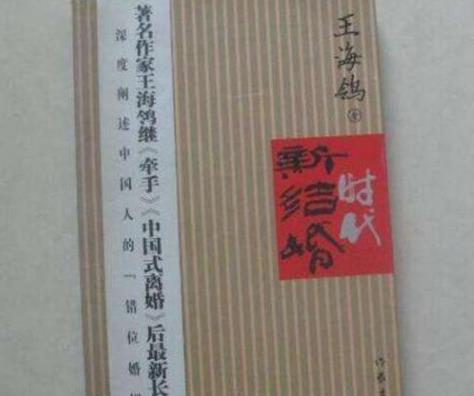 王海鸰 著
新结婚
时代
著名作家王海鸰继《牵手》《中国式离婚》后最新长
深度阐述中国人的“错位婚姻
作家